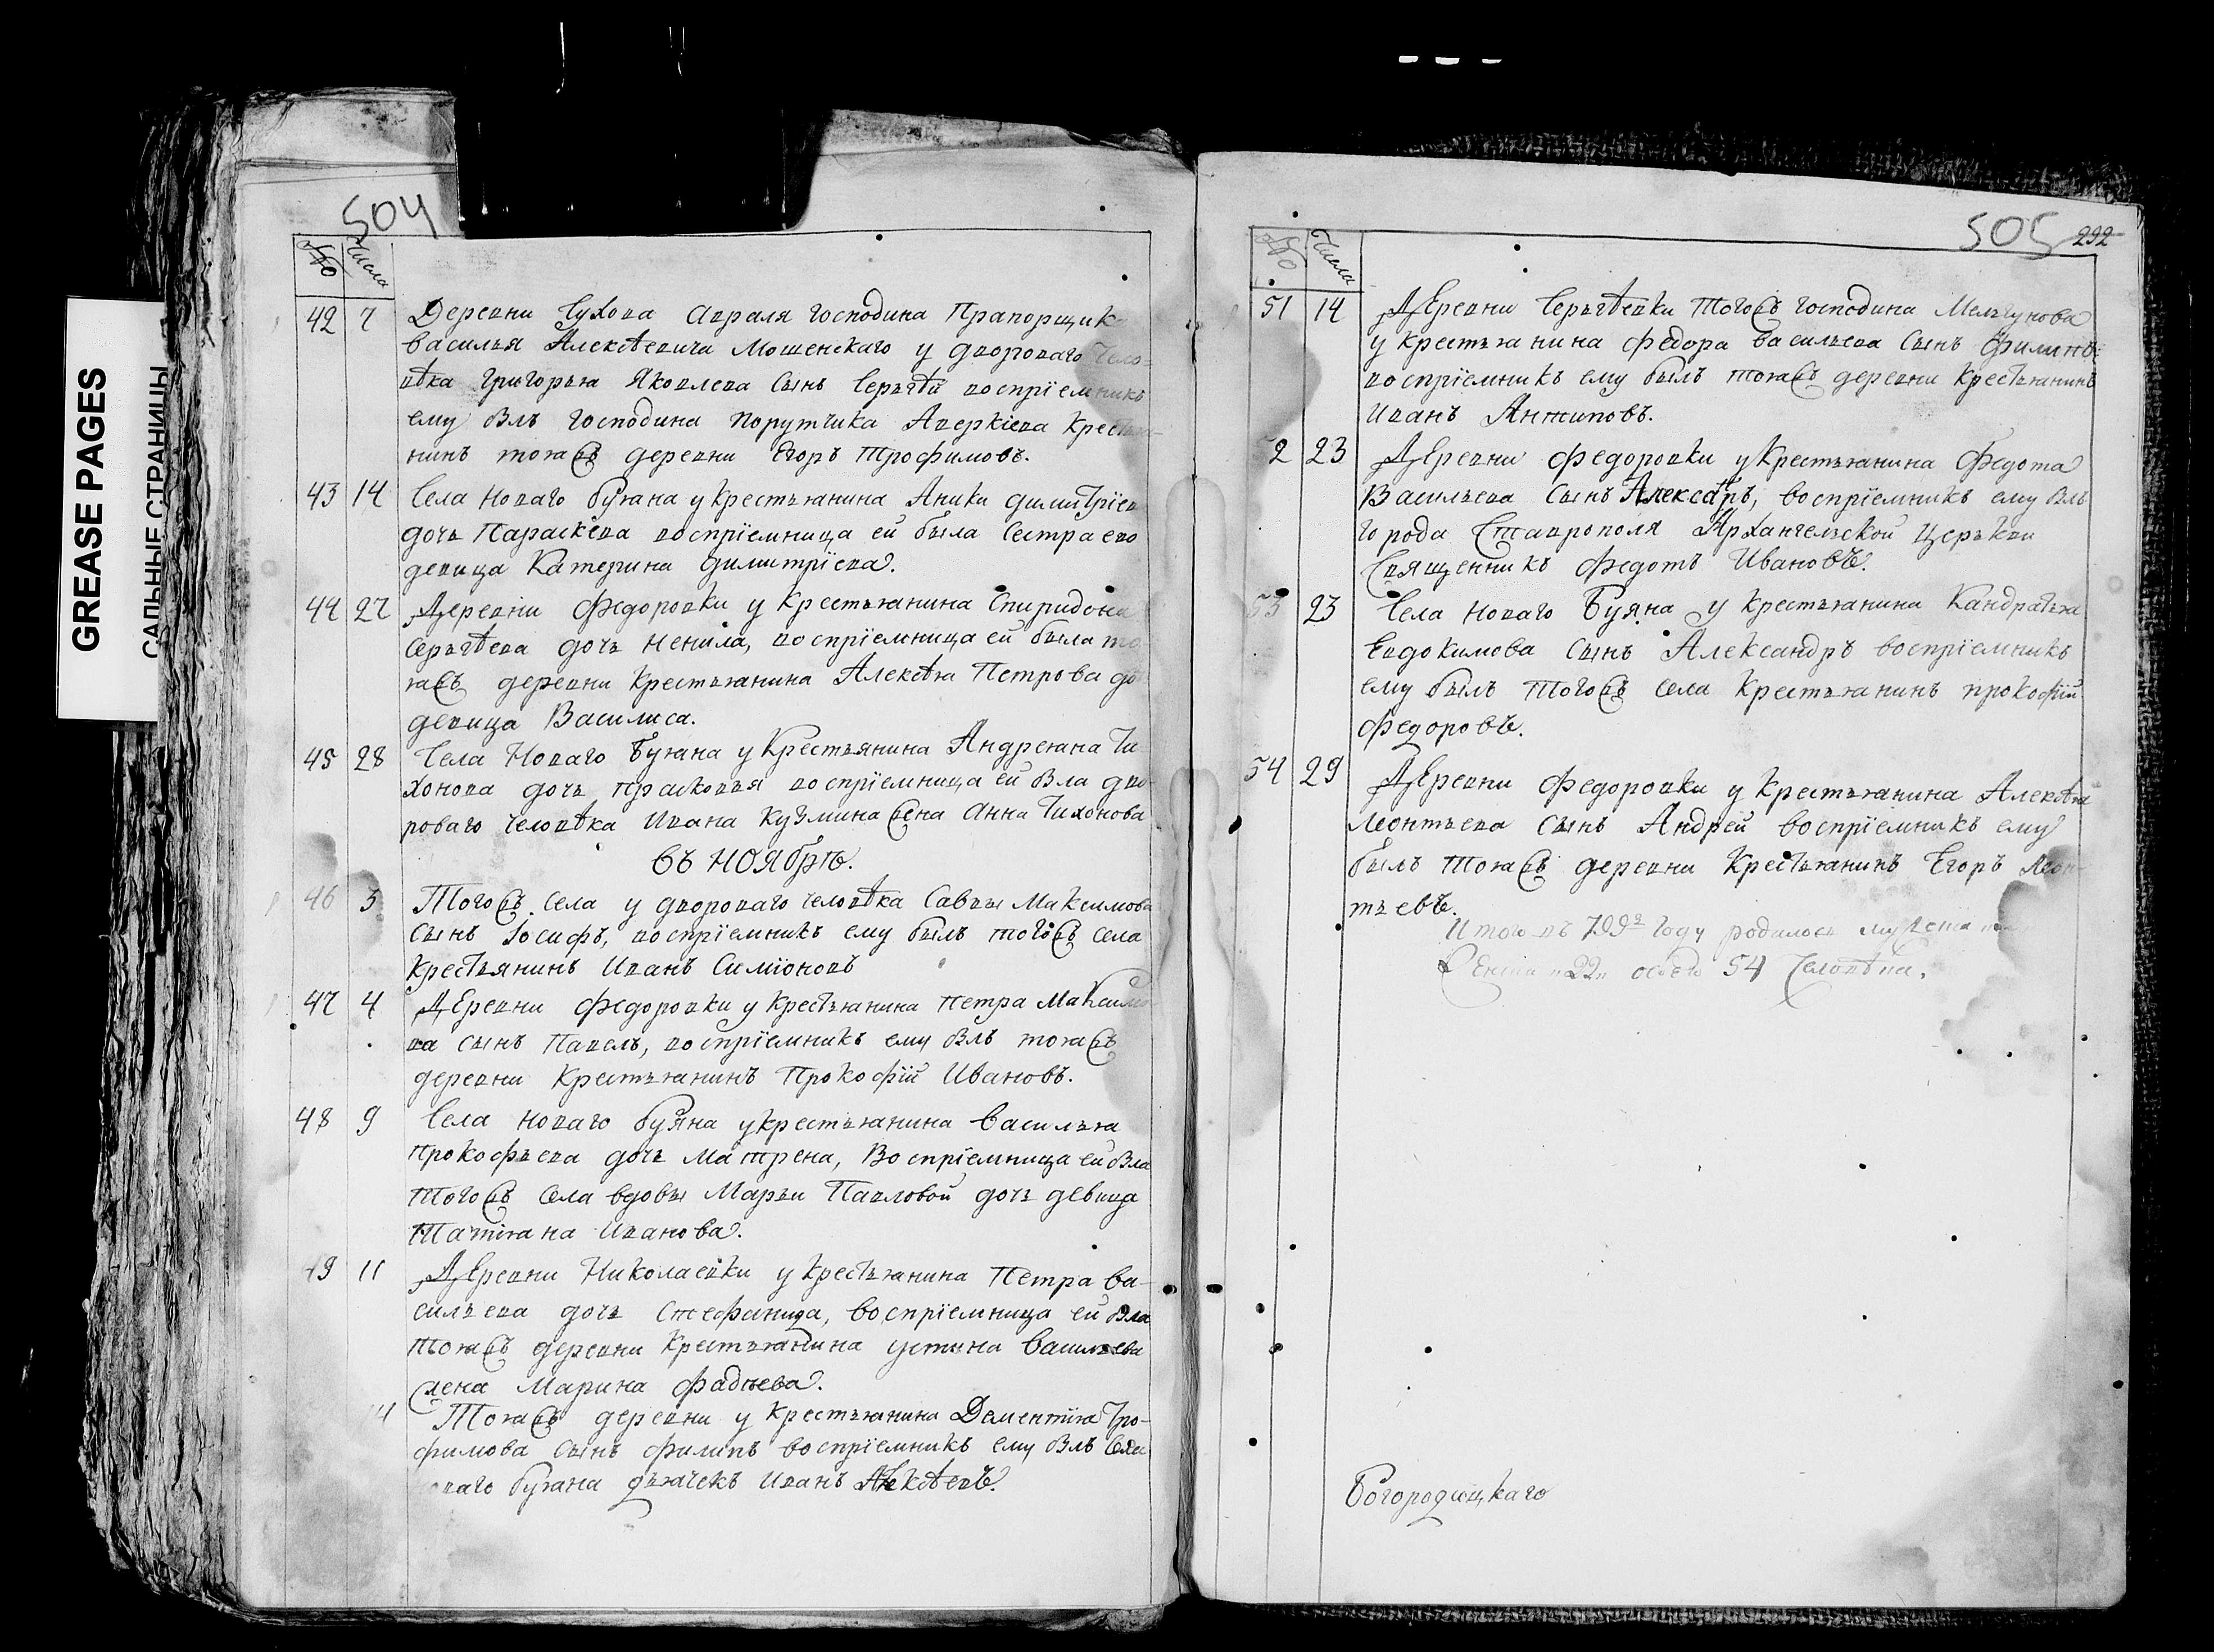 GREASE PAGES
САЛЬНЫЕ СТРАНИЦЫ
504
№ Числа
42 7 Деревни Сухова Авраля господина Прапорщик
василья Алексѣевича Мошенскаго у двороваго чело-
вѣка григорья Яковлева сынъ Сергѣй восприемникъ
ему былъ господина порутчика Аверкiева крестья-
нинъ тояжъ деревни Егоръ Трофимовъ.
43 14 Села Новаго буяна у крестьянина Аники димитрiев
дочь Параскева восприемница ей была сестра ево
девица Катерина димитрiева.
44 27 Деревни федоровки у крестьянина Спиридона
сергѣева дочь ненила, восприемница ей была то
яжъ деревни крестьянина Алексѣя Петрова до
девица Василиса.
45 28 Села Новаго буяна у крестьянина Андреяна Ти
хонова дочь прасковья восприемница ей была дво-
роваго человѣка Ивана Кузмина жена анна Тихонова
въ НОЯбрѣ.
46 3 Тогожъ села у двороваго человѣка Саввы Максимова
сынъ Iосифъ, восприемникъ ему былъ тогожъ села
крестьянинъ Иванъ Симiоновъ
47 4 ДЕревни федоровки у крестьянина петра Максимо
ва сынъ Павелъ, восприемникъ ему былъ тояжъ
деревни крестьянинъ Прокофiй Ивановъ.
48 9 Села новаго буяна у крестьянина василья
прокофьева дочь Матрена, Восприемница ей была
тогожъ села вдовы Марьи Павловой дочь девица
Татiяна Иванова.
49 11 ДЕревни Николаевки у крестьянина Петра ва-
сильева дочь Стефанида, восприемница ей была
тояжъ деревни крестьянина устина васильева
жена Марина фадѣева.
14 Тояжъ деревни у крестьянина Дементiя Тро-
фимова сынъ филипъ восприемникъ ему былъ села
новаго буяна дьячекъ Иванъ Алексѣевъ.
505 292
№ Числа
51 14 ДЕревни Сергѣевки тогожъ господина Мельгунова
у крестьянина федора васильева сынъ филипъ
восприемникъ ему былъ тояжъ деревни крестьянинъ
Иванъ Антиповъ.
52 23 ДЕревни федоровки у крестьянина федота
Васильева сынъ Алексадръ, восприемникъ ему былъ
города Ставрополя Архангельской Церькви
Священникъ федотъ Ивановъ.
53 23 Села новаго буяна у крестьянина Кандратья
Евдокимова сынъ Александръ восприемникъ
ему былъ тогожъ села крестьянинъ прокофiй
федоровъ.
54 29 ДЕревни федоровки у крестьянина Алексѣя
леонтьева сынъ Андрей восприемникъ ему
былъ тояжъ деревни крестьянинъ Егоръ Леон-
тьевъ.
Итого въ 799г году родилось мужеска
женска 22 обоего 54 человѣка.
Богородицкаго